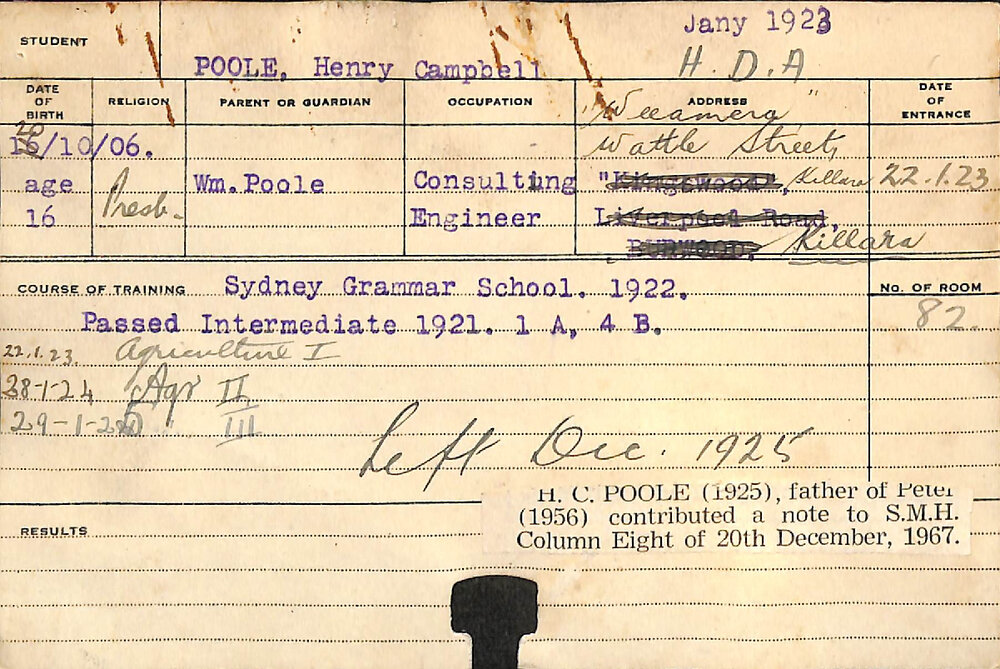 STUDENT
Jany 1923
POOLE, Henry Campbell
H. D. A
DATE OF BIRTH
RELIGION
PARENT OR GUARDIAN
OCCUPATION
ADDRESS
DATE OF ENTRANCE
20
16/10/06.
age
16
Presb.
Wm.Poole
Consulting
Engineer
"Weeamera"
Wattle Street,
"Kingswood", Killara
Liverpool Road,
BURWOOD, Killara
22.1.23
COURSE OF TRAINING Sydney Grammar School. 1922.
No. OF ROOM
Passed Intermediate 1921. 1 A, 4 B.
82.
22.1.23. Agriculture I
28-1-24 Agr II
29-1-25 " III
Left Dec. 1925
H. C. POOLE (1925), father of Peter
(1956) contributed a note to S.M.H.
Column Eight of 20th December, 1967.
RESULTS